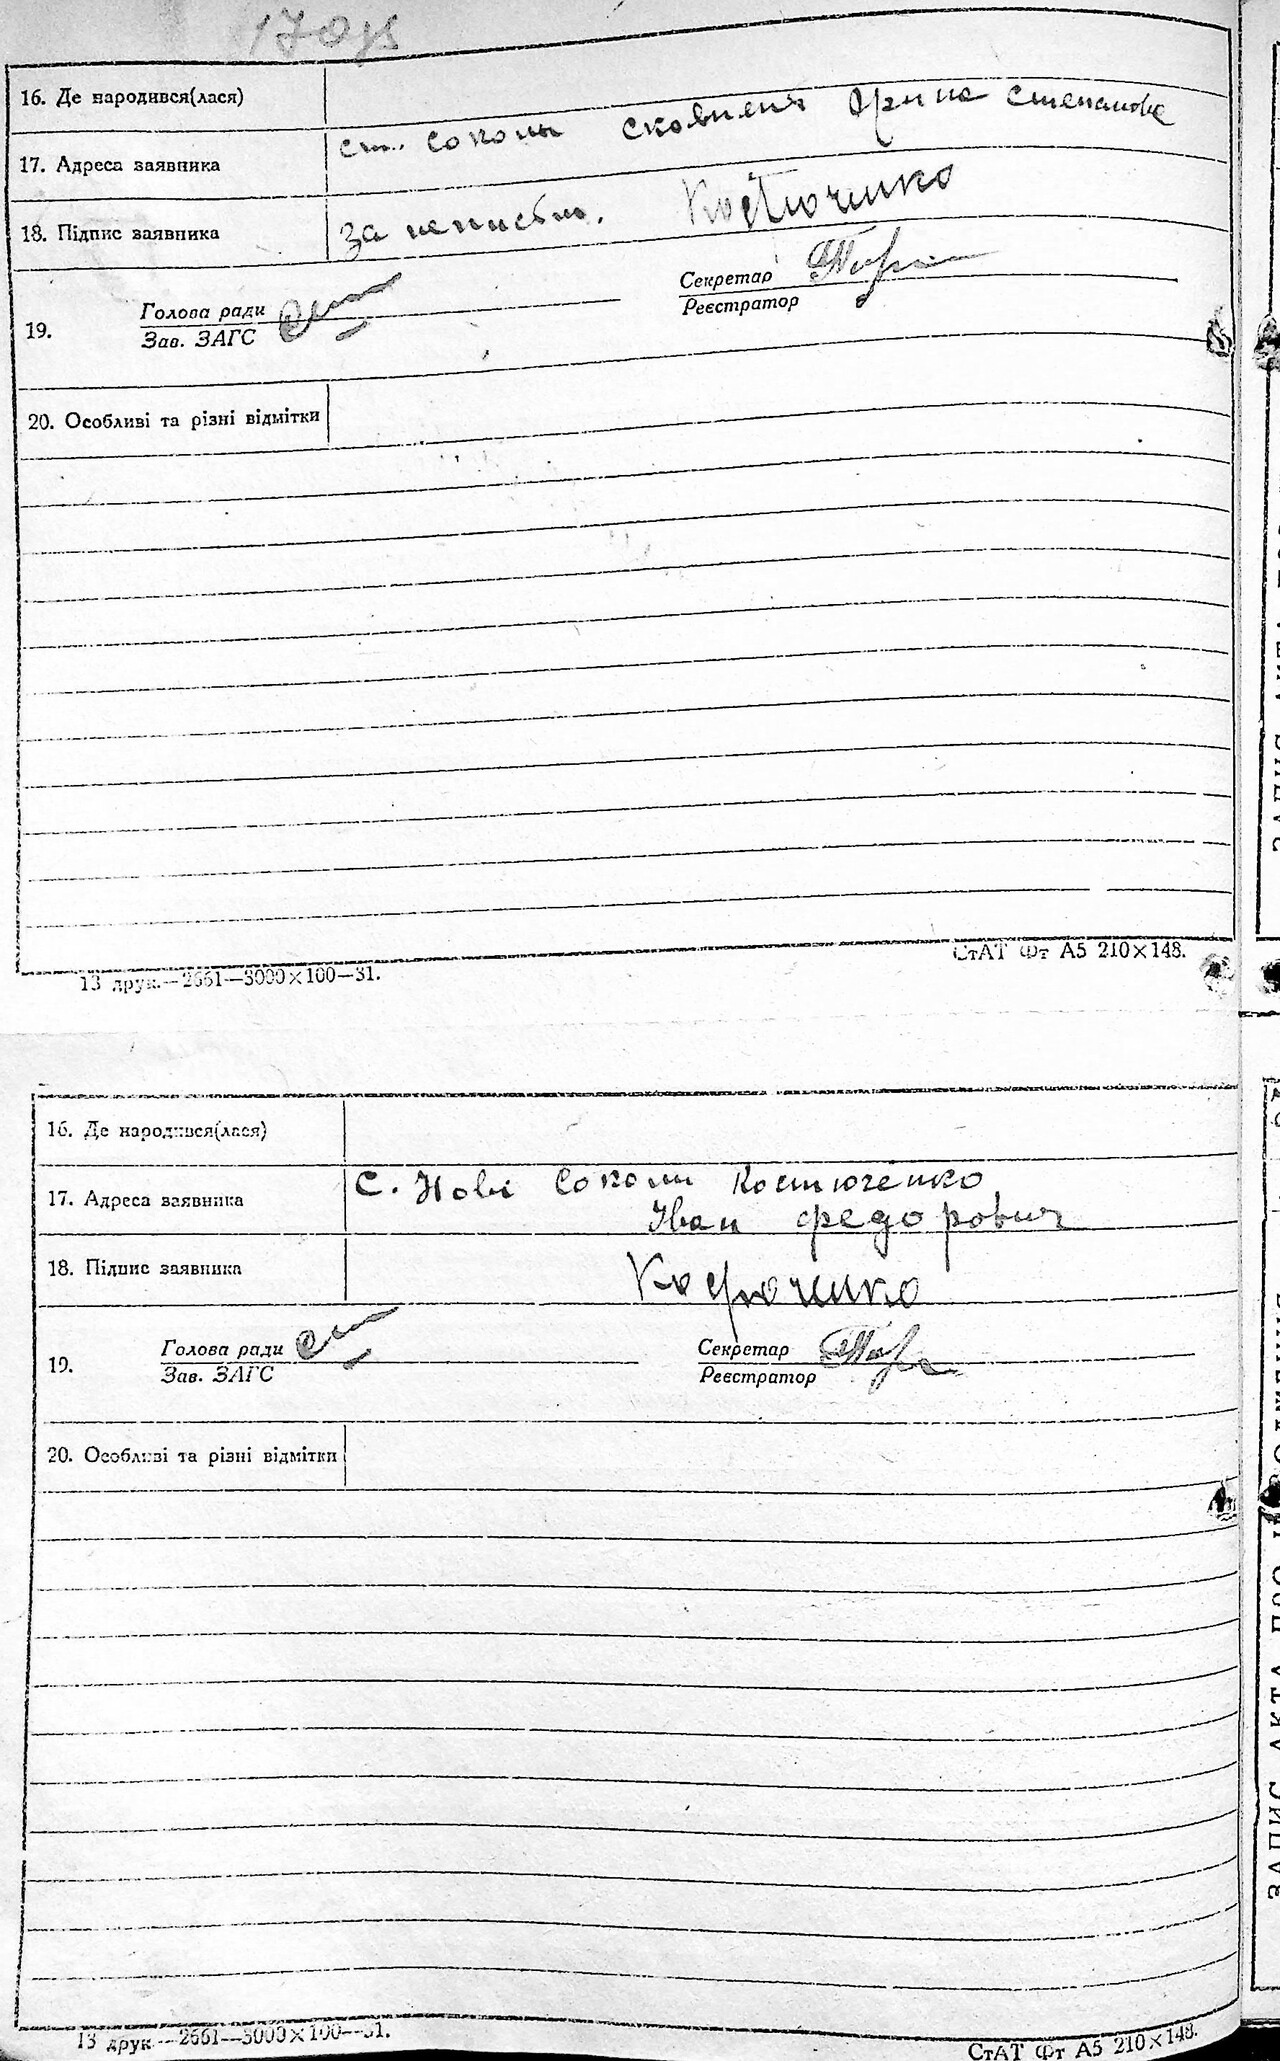 170
16. Де народився(лася)
17. Адреса заявника
ст. Соколи Сковпеня Орина Степановна
18. Підпис заявника
за неписьм. Костюченко
19. Голова ради
Зав. ЗАГС
Секретар
Реєстратор
20. Особливі та різні відмітки
13 друк.—2661—3000×100—31.
СтАТ Фт А5 210×148.
16. Де народився(лася)
17. Адреса заявника
С. Нові Соколи Костюченко
Іван Федорович
18. Підпис заявника
Костюченко
19. Голова ради
Зав. ЗАГС
Секретар
Реєстратор
20. Особливі та різні відмітки
13 друк.—2661—3000×100—31.
СтАТ Фт А5 210×148.